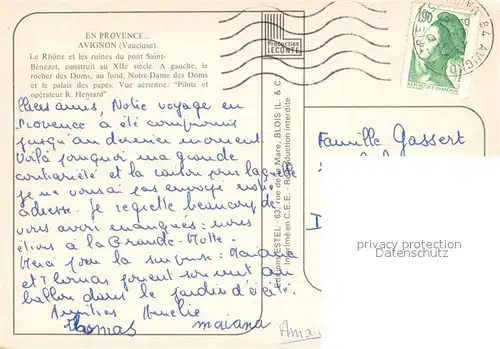 EN PROVENCE...
AVIGNON (Vaucluse).
Le Rhône et les ruines du pont Saint-
Bénézet, construit au XIIe siècle. A gauche, le
rocher des Doms, au fond, Notre-Dame des Doms
et le palais des papes. Vue aérienne: "Pilote et
opérateur R. Henrard".
Chers amis, Notre voyage en
Provence a été compromis
jusqu'au dernier moment.
Voilà pourquoi ma grande
contrariété et la raison pour laquelle
je ne vous ai pas envoyé notre
adresse. Je regrette beaucoup de
vous avoir manqués: nous
étions à la Grande-Motte.
Merci pour la surprise: Maiana
et Thomas jouent souvent au
ballon dans le jardin d'été.
Amitiés Amélie
Thomas maiana
Production
LECONTE
Editions ESTEL - 63, rue de la Mare, BLOIS (L. & C.)
Imprimé en C.E.E. - Reproduction interdite
1,90
84 AVIGNON
Famille Gassert
privacy protection
Datenschutz